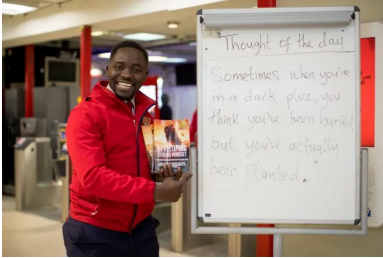 Thought of the day
Sometimes when you're
in a dark place, you
think you've been buried,
but you've actually
been planted.